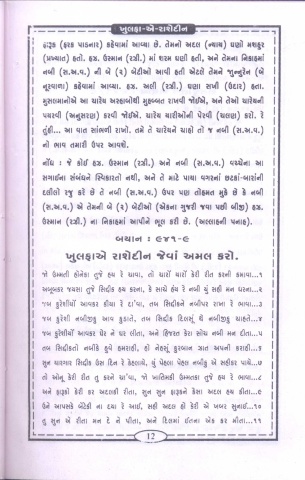 ખુલફા-એ-રાશેદીન
ફારૂક (ફરક પાડનાર) કહેવામાં આવ્યા છે. તેમનો અદલ (ન્યાય) ઘણો મશહુર
(પ્રખ્યાત) હતો. હઝ. ઉસ્માન (રઝી.) માં શરમ ઘણી હતી, અને તેમના નિકાહમાં
નબી (સ.અ.વ.) ની બે (૨) બેટીઓ આવી હતી એટલે તેમને જુન્નુરેન (બે
નૂરવાળા) કહેવામાં આવ્યા. હઝ. અલી (રઝી.) ઘણા સખી (ઉદાર) હતા.
મુસલમાનોએ આ ચારેય અસ્હાબોથી મુહબ્બત રાખવી જોઈએ, અને તેઓ ચારેયની
પયરવી (અનુસરણ) કરવી જોઈએ. ચારેય યારોઓની પેરવી (ચલણ) કરો. રે
તુંહી... આ વાત સાંભળી રાખો. તમે તે ચારેયને ચાહો તો જ નબી (સ.અ.વ.)
નો ભાવ તમારી ઉપર આવશે.
નોંધ : જે કોઈ હઝ. ઉસ્માન (રઝી.) અને નબી (સ.અ.વ.) વચ્ચેના આ
સગાઈના સંબંધને સ્વિકારતો નથી, અને તે માટે પાયા વગરનાં છટકાં-બારાંની
દલીલો રજુ કરે છે તે નબી (સ.અ.વ.) ઉપર પણ તોહમત મુકે છે કે નબી
(સ.અ.વ.) એ તેમની બે (૨) બેટીઓ (એકના ગુજરી જવા પછી બીજી) હઝ.
ઉસ્માન (રઝી.) ના નિકાહમાં આપીને ભૂલ કરી છે. (અલ્લાહની પનાહ).
બયાન : ૯૪૧-૯
ખુલફાએ રાશેદીન જેવાં અમલ કરો.
જો ઉમ્મતી હોનેકા તુજે હય રે દાવા, તો ચારોં યારોં કેરી રીત કરની કમાવા...૧
અબૂબકર જયસા તુજે સિદીક હય કરના, કે સાચે હય રે નબી યું સહી મન ધરના...૨
જબ કુરેશીયોં આવકર કીયા રે દા'વા, તબ સિદીકને નબીપર રાખા રે ભાવા...૩
જબ કુરેશી નબીજીકું આવ કુડાતે, તબ સિદીક દિલસું થે નબીજીકુ ચાહતે...૪
જબ કુરેશીયોં આવકર ઘેર ને ઘર લીતા, અને હિજરત કેરા સોચ નબી મન દીતા...૫
તબ સિદીકતો નબીકે હુવે હમરાહી, હો નેહસું કુરબાન ઝાત અપની કરાહી...૬
સુન યારગાર સિદીક ઉસ દિન રે કેહલાયે, યું પેહલા પેહલ નબીકુ એ સહીકર પાયે...૭
તો ઓનુ કેરી રીત તુ કરને ચા'વા, જો ખાતિમકી ઉમ્મતકા તુજે હય રે ભાવા...૮
અને ફારૂકો કેરી કર અદલકી રીતા, સુન સુન ફારૂકને કેસા અદલ હય કીતા...૯
ઉને આપસકે બેટેકી ના દયા રે ખાઇ, સહી અદલ હી કેરી એ ખબર સુનાઈ...૧૦
તુ સુન એ રીતા મન દે ને પીતા, અને દિલમાં ઇતના એક કર મીતા...૧૧
12